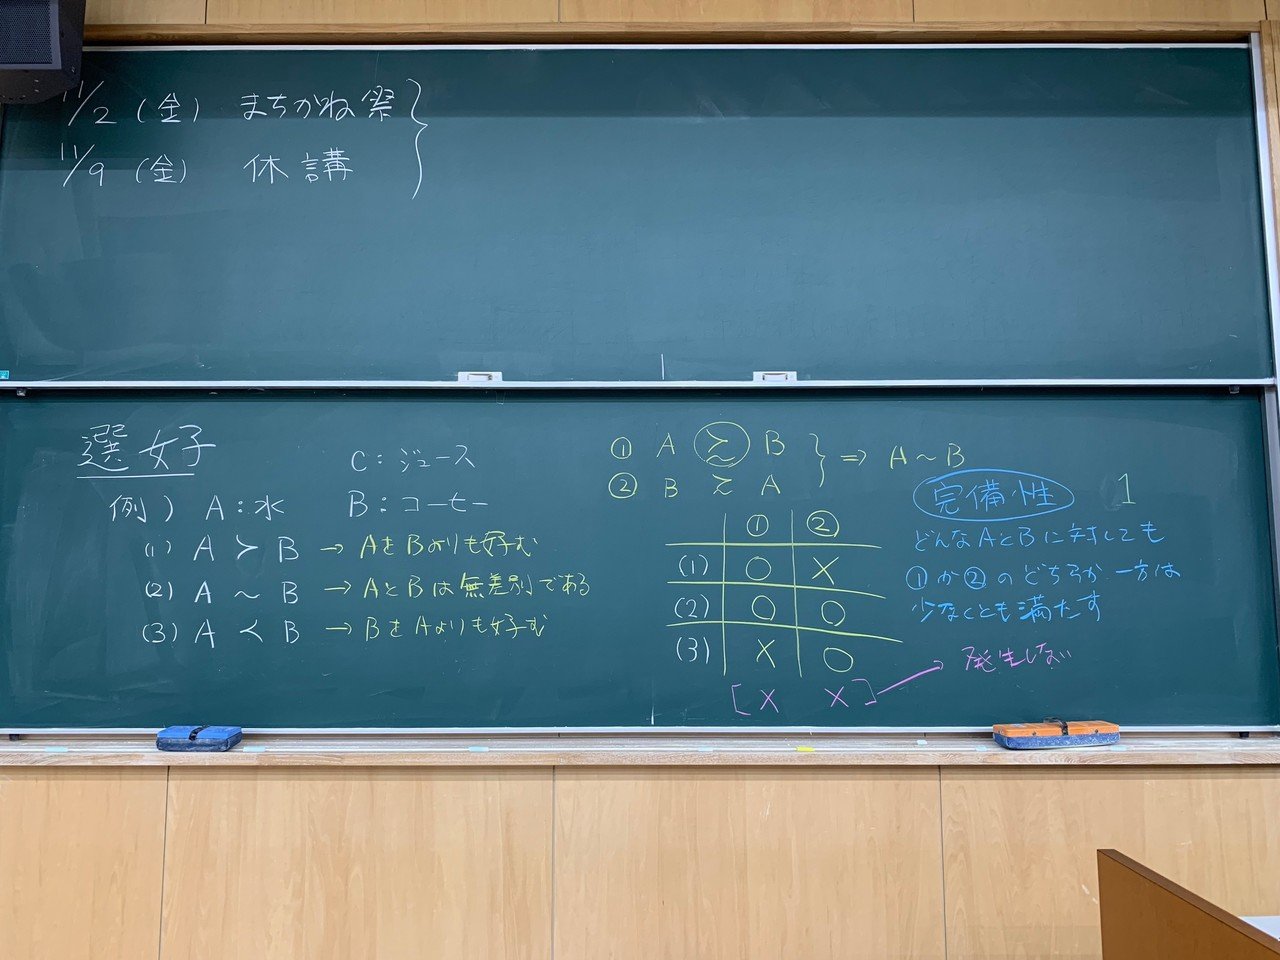 11/2 (金) まちかね祭
11/9 (金) 休講
選好
C:ジュース
例) A:水 B:コーヒー
(1) A ≻ B → AをBよりも好む
(2) A ~ B → AとBは無差別である
(3) A ≺ B → BをAよりも好む
① A ≿ B
② B ≿ A
⇒ A~B
① ②
(1) ○ ×
(2) ○ ○
(3) × ○
[× ×] → 発生しない
完備性 1
どんなAとBに対しても
①か②のどちらか一方は
少なくとも満たす